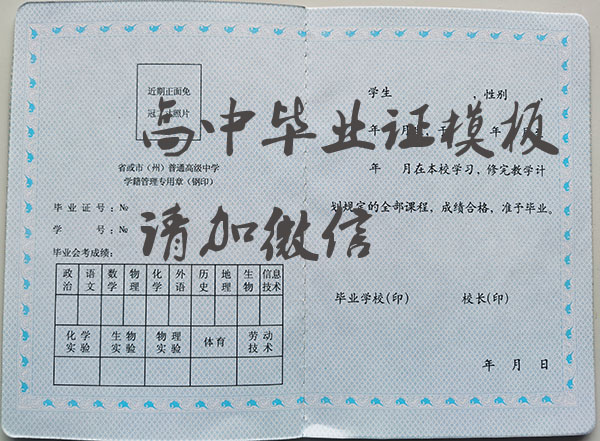 近期正面免
冠 照片
省或市（州）普通高级中学
学籍管理专用章（钢印）
毕业证号：№
学 号：№
毕业会考成绩：
政治 语文 数学 物理 化学 外语 历史 地理 生物 信息技术
化学实验 生物实验 物理实验 体育 劳动技术
学生 ，性别 ，
年 月 ，于 年 月
年 月在本校学习，修完教学计
划规定的全部课程，成绩合格，准于毕业。
毕业学校(印) 校长(印)
年 月 日
高中毕业证模板
请加微信